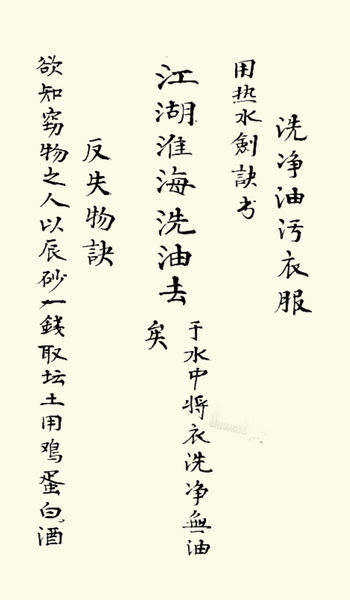 洗净油污衣服
用热水劍訣书
江湖淮海洗油去
于水中将衣洗净無油
矣
反失物訣
欲知窃物之人以辰砂一錢取坛土用鸡蛋白酒